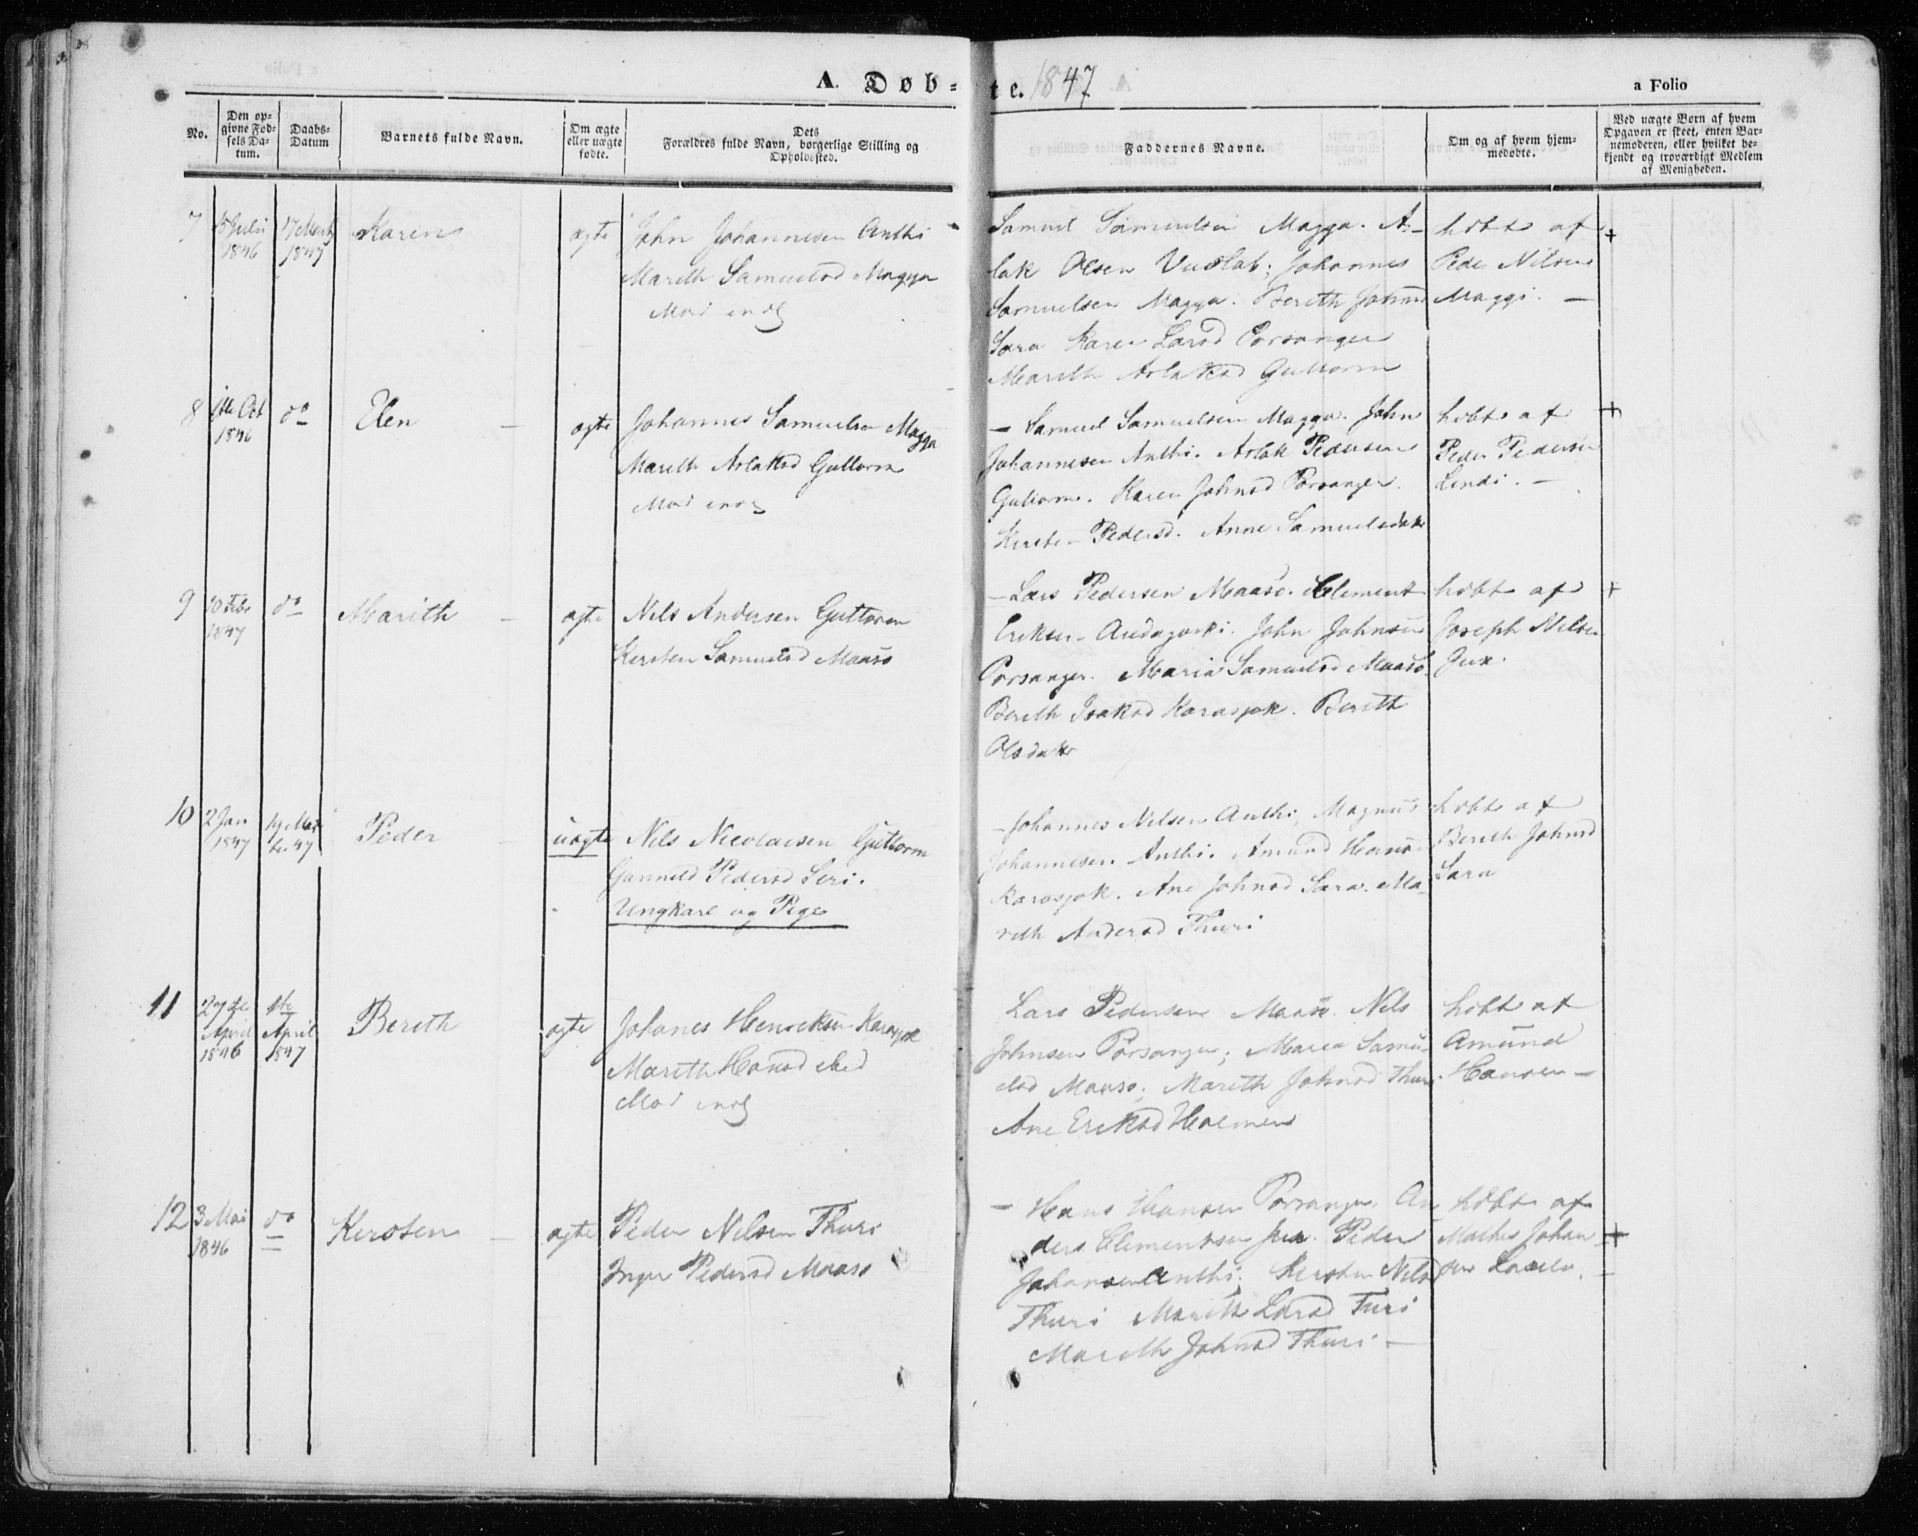 A. Døb-
te. 1847
a Folio
No.
Den op-
givne Fød-
sels Da-
tum.
Daabs-
Datum
Barnets fulde Navn.
Om ægte
eller uægte
fødte.
Dets
Forældres fulde Navn, borgerlige Stilling og
Opholdssted.
Faddernes Navne.
Om og af hvem hjem-
medøbte.
Ved uægte Børn af hvem
Opgaven er skeet, enten Bar-
nemoderen, eller hvilket be-
kjendt og troværdigt Medlem
af Menigheden.
7
1846
17 Marts
1847
Karen
ægte
John Johannesen Anthi
Mareth Samuelsd Magga
Samuel Samuelsen Magga. As-
lak Olsen Vuolab; Johannes
Samuelsen Magga. Bereth Johnsd
Sara Karen Larsd Porsanger
Mareth Aslaksd Guttorm
hdbt af
Peder Nilsen
Maggi. —
+
8
Oct
1846
do
Elen —
ægte
Johannes Samuelsen Magga
Mareth Aslaksd Guttorm
— Samuel Samuelsen Magga. John
Johannesen Anthi. Aslak Pedersen
Guttorm. Karen Johnsd Porsanger.
Pedersd. Anne Samuelsdatter
hdbt af
Peder Pedersen
Lindi. —
+
9
10 Febr
1847
do
Marith —
ægte
Nils Andersen Guttorm
Kersten Samuelsd Maasø
— Lars Pedersen Maasø. Clement
Eriksen. John Johnsen
Porsanger. Maria Samuelsd Maasø.
Bereth Isaksd Karasjok. Bereth
Olsdatter
hdbt af
Joseph Nilsen
+
10
2 Jan
1847
19 Mar
47
Peder —
uægte
Nils Nicolaisen Guttorm
Gunnild Pedersd Siri.
Ungkarl og Pige
— Johannes Nilsen Anthi, Magnus
Johannesen Anthi. Amund Hansen
Karasjok. Ane Johnsd Sara. Ma-
reth Andersd Thuri
hdbt af
Bereth Johnsd
Sara
11
27de
April
1846
April
1847
Bereth
ægte
Johanes Henriksen Karasjok
Mareth Hansd
Lars Pedersen Maasø. Nils
Johnsen Porsanger; Maria Samu-
elsd Maasø; Mareth Johnsd Thuri.
Ane Eriksd Holmen
hdbt af
Amund
Hansen —
12
3 Mai
1846
do
Kersten —
ægte
Peder Nilsen Thuri
Inger Pedersd Maasø
— Hans Hansen Porsanger. An
ders Clementsen. Peder
Johansen Anthi. Kersten Nilsd
Thuri Mareth Larsd Turi
Mareth Johnsd Thuri —
hdbt af
Mathis Johan
+